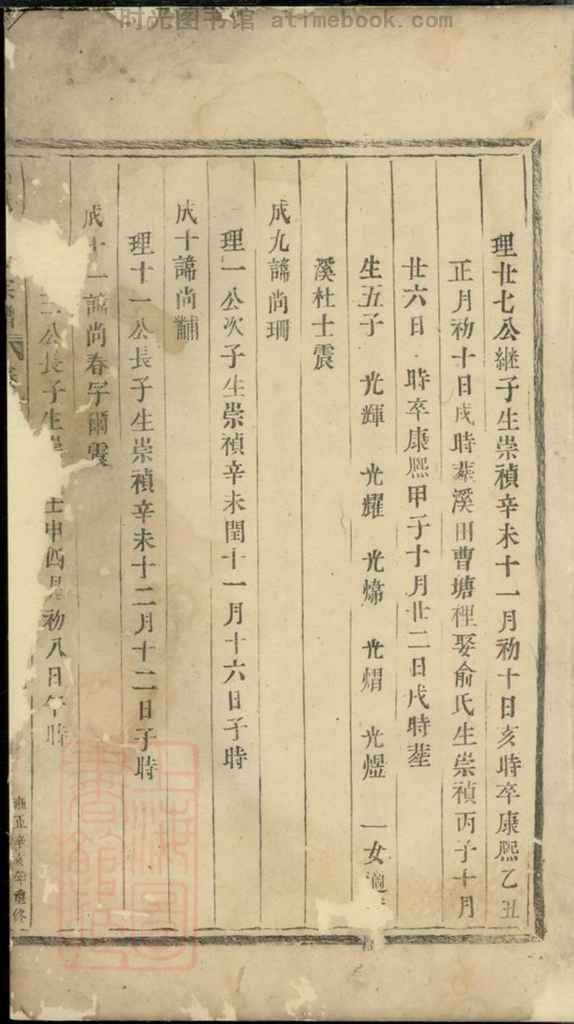 时光图书馆 atimebook.com
理廿七公継子生崇禎辛未十一月初十日亥時卒康熙乙丑
正月初十日戌時葬溪田曹塘裡娶俞氏生崇禎丙子十月
廿六日 時卒康熙甲子十月廿二日戌時葬
生五子 光輝 光耀 光 光熠 光煜 一女適
溪杜士震
成九諱尚珊
理一公次子生崇禎辛未閏十一月十六日子時
成十諱尚黼
理十一公長子生崇禎辛未十二月十二日子時
成十一諱尚春字爾震
公長子生崇 壬申四月初八日午時
雍正辛亥年重修
上海圖書館藏